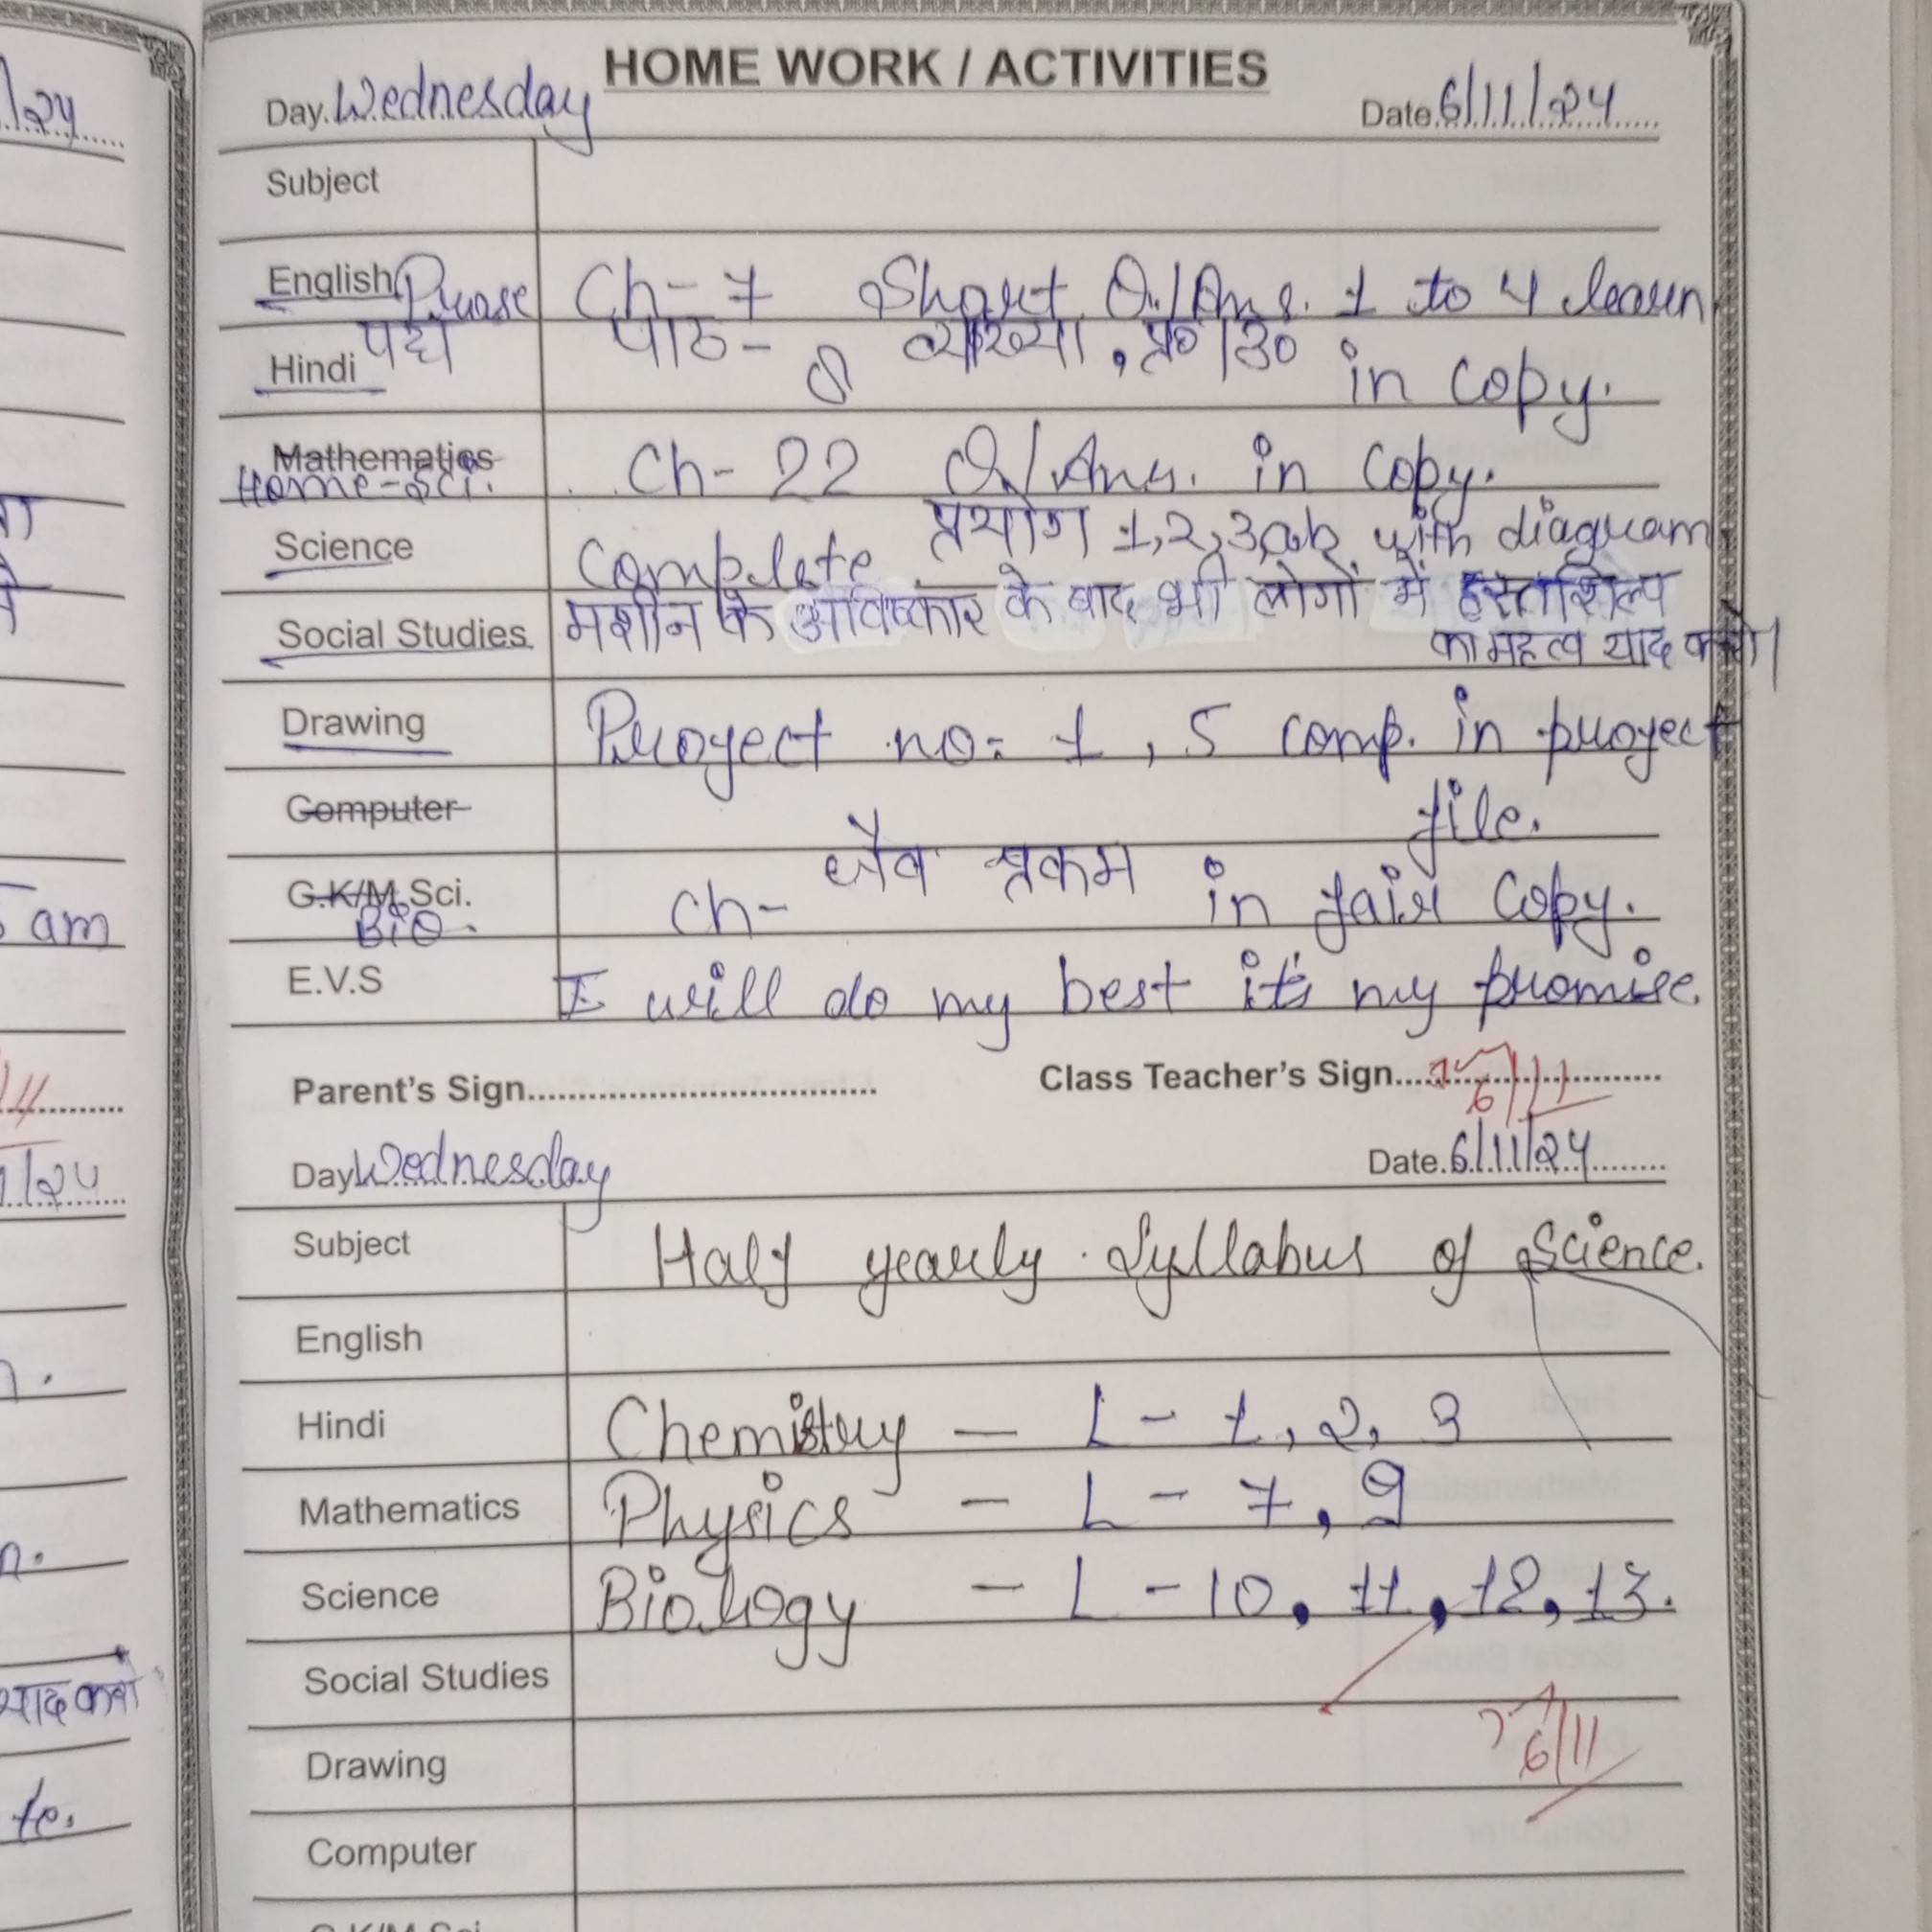 HOME WORK / ACTIVITIES
Day. Wednesday Date. 6/11/24
Subject
English Prose Ch- 7 Short Q./Ans. 1 to 4 learn
Hindi पद्य पाठ- व्याख्या, प्र० / उ० in copy.
Mathematics
Home-Sci. Ch- 22 Q/Ans. in copy.
Science Complete प्रयोग 1,2,3 with diagram
Social Studies मशीन के आविष्कार के बाद भी लोगों में हस्तशिल्प
का महत्व याद करो।
Drawing Project no= 1, 5 comp. in project
Computer file.
G.K/M.Sci. Bio. Ch- जैव प्रक्रम in fair copy.
E.V.S I will do my best it's my promise.
Parent's Sign Class Teacher's Sign 6/11
Day Wednesday Date. 6/11/24
Subject Half yearly Syllabus of Science.
English
Hindi Chemistry - L - 1, 2, 3
Mathematics Physics - L - 7, 9
Science Biology - L - 10, 11, 12, 13.
Social Studies
6/11
Drawing
Computer